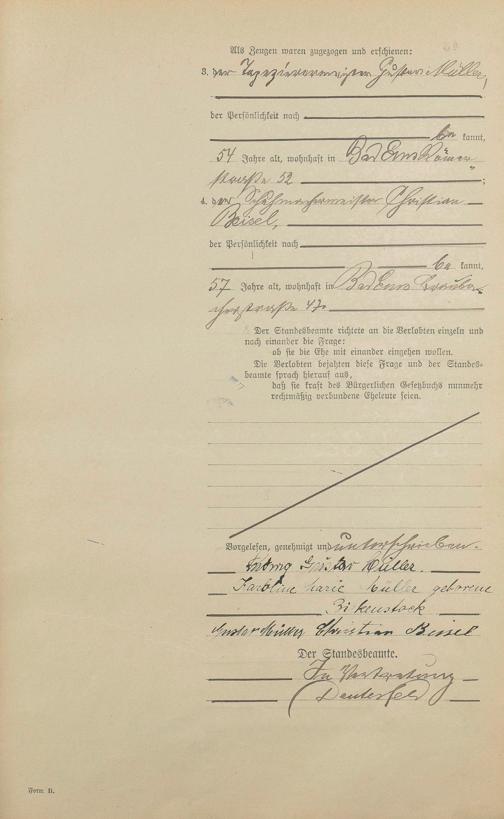 Als Zeugen waren zugezogen und erschienen:
3. der Tapezierermeister Gustav Müller,
der Persönlichkeit nach
be kannt,
54 Jahre alt, wohnhaft in Bad Ems Römer
straße 52 ;
4. der Schuhmachermeister Christian
Beisel,
der Persönlichkeit nach
be kannt,
57 Jahre alt, wohnhaft in Bad Ems
straße
Der Standesbeamte richtete an die Verlobten einzeln und
nach einander die Frage:
ob sie die Ehe mit einander eingehen wollen.
Die Verlobten bejahten diese Frage und der Standes-
beamte sprach hierauf aus,
daß sie kraft des Bürgerlichen Gesetzbuchs nunmehr
rechtmäßig verbundene Eheleute seien.
Vorgelesen, genehmigt und unterschrieben.
Gustav Müller.
Karoline Marie Müller geborene
Birkenstock
Gustav Müller Christian Beisel
Der Standesbeamte.
In Vertretung
Form B.